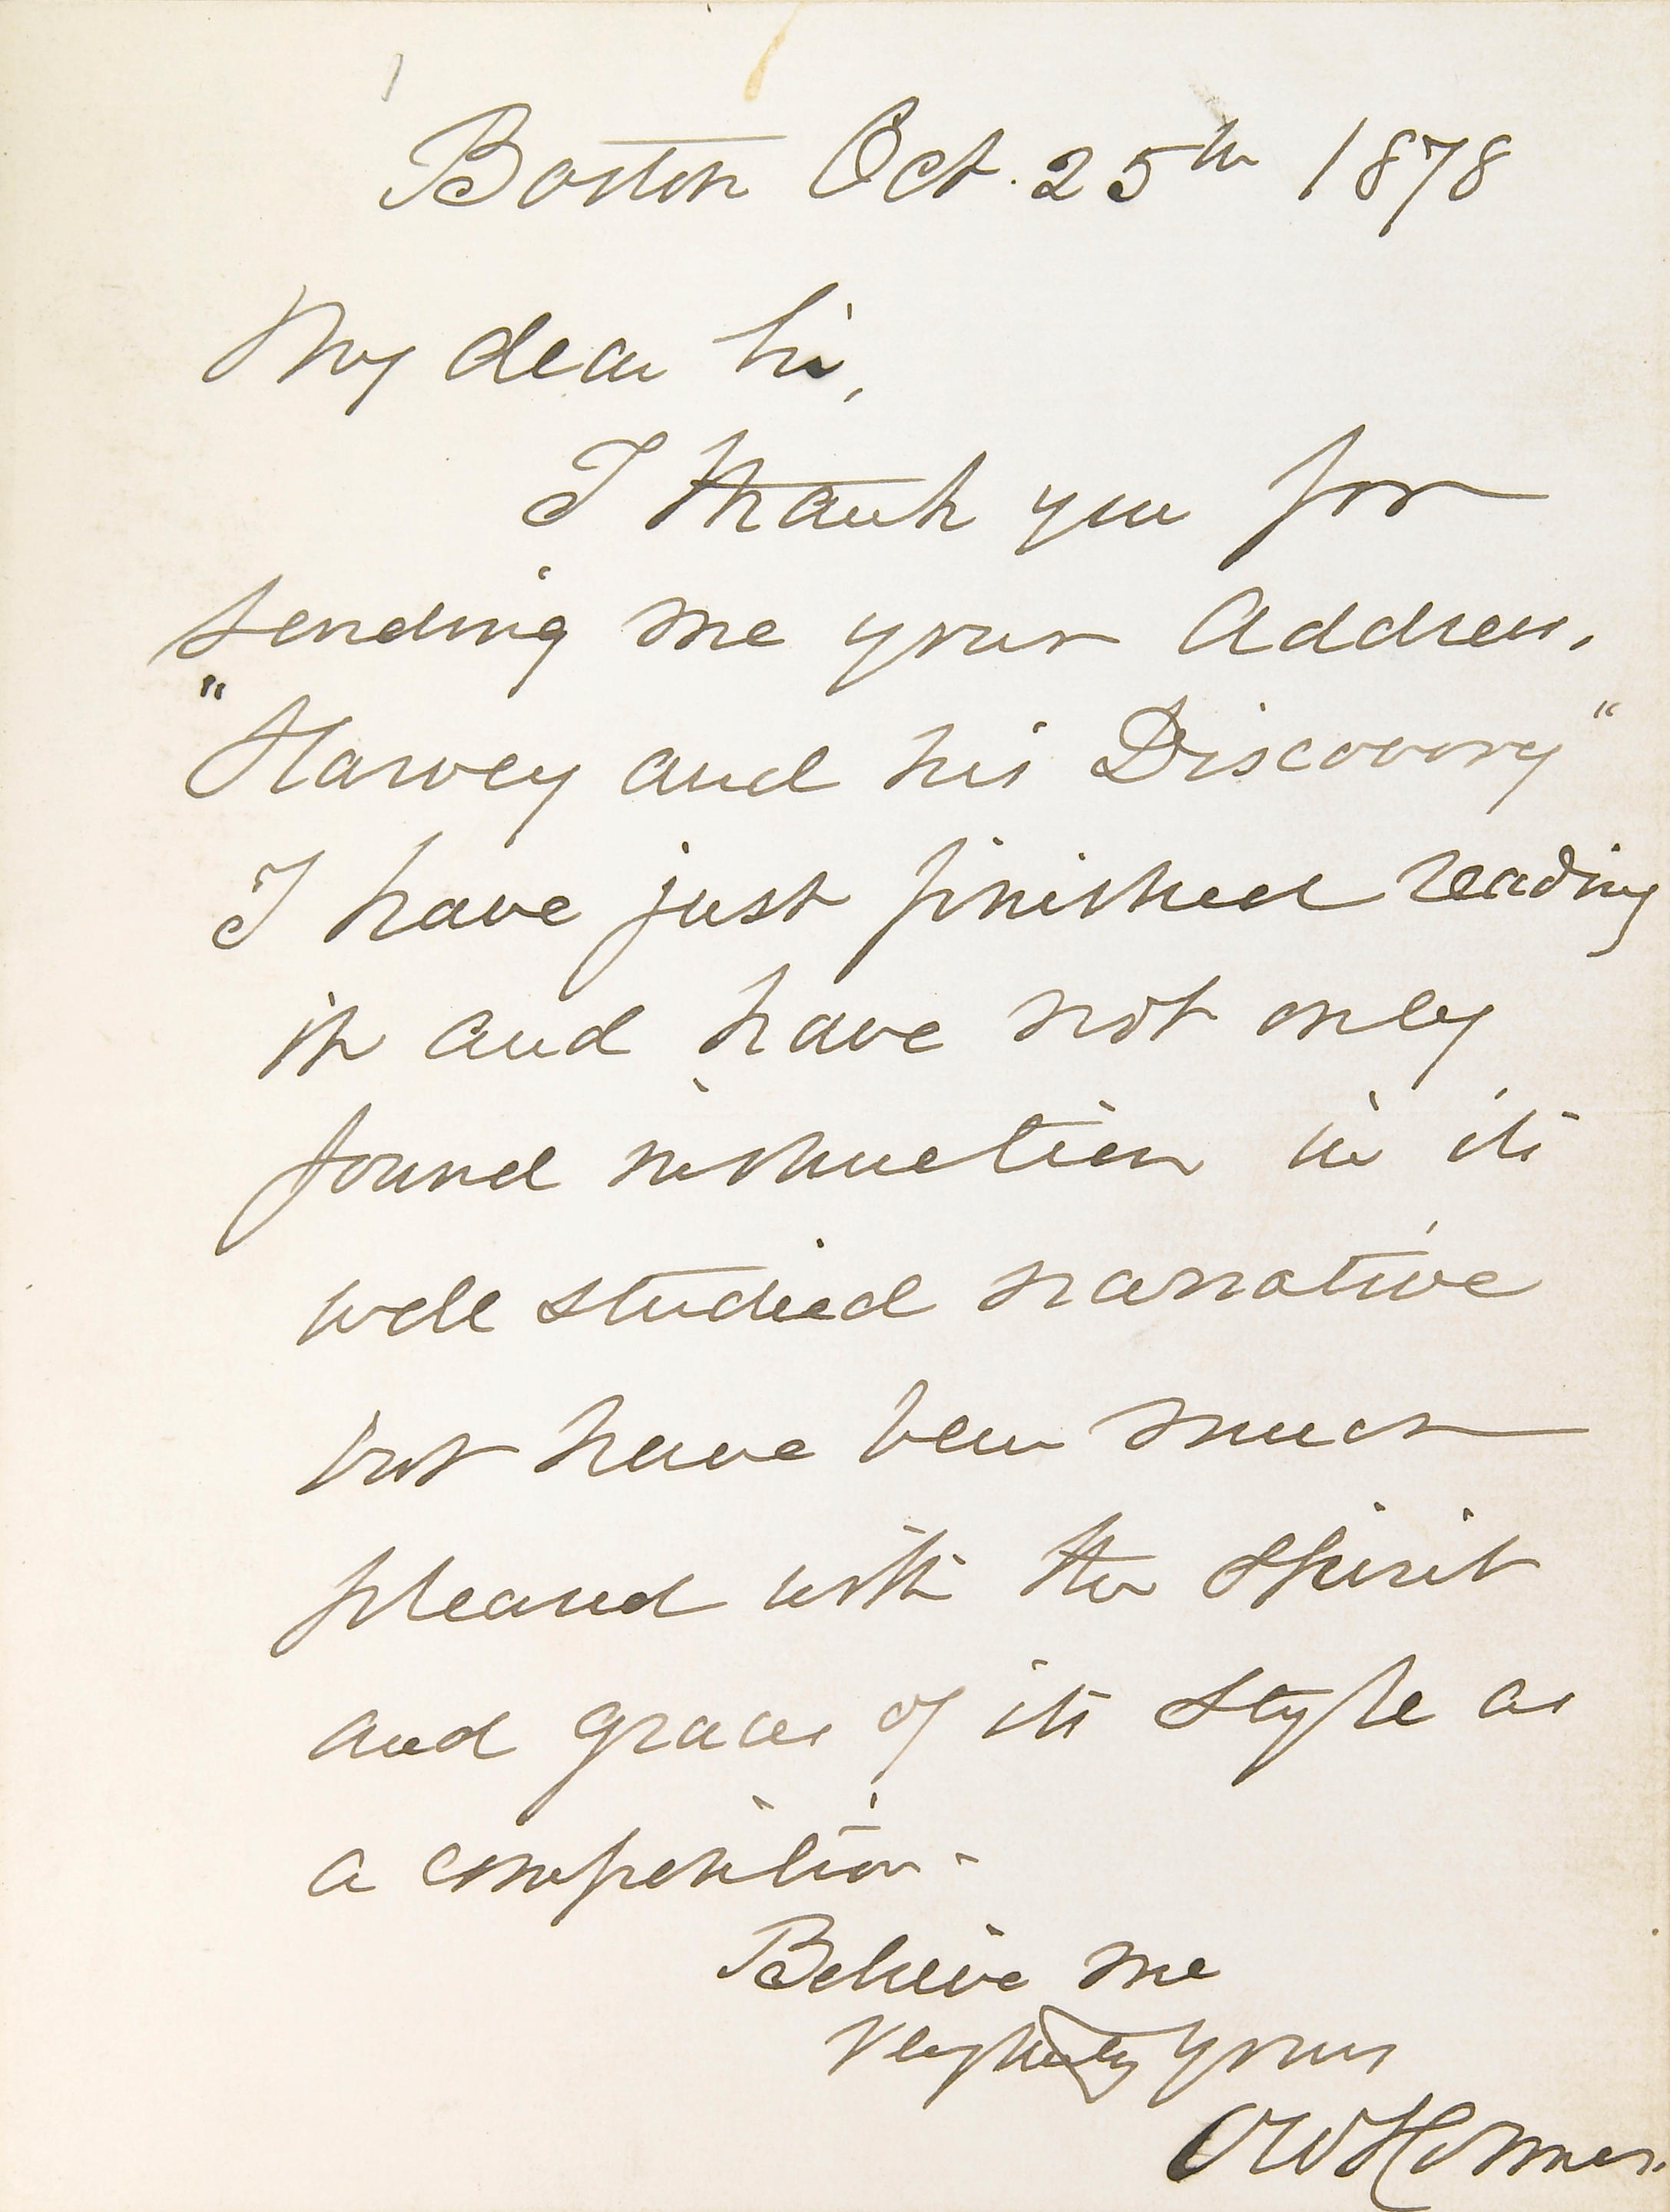 Boston Oct. 25th 1878
My dear Sir,
I thank you for
sending me your Address,
"Harvey and his Discovery"
I have just finished reading
it and have not only
found instruction in its
well studied narrative
but have been much
pleased with the spirit
and graces of its style as
a composition.
Believe me
Very truly yours
O W Holmes.